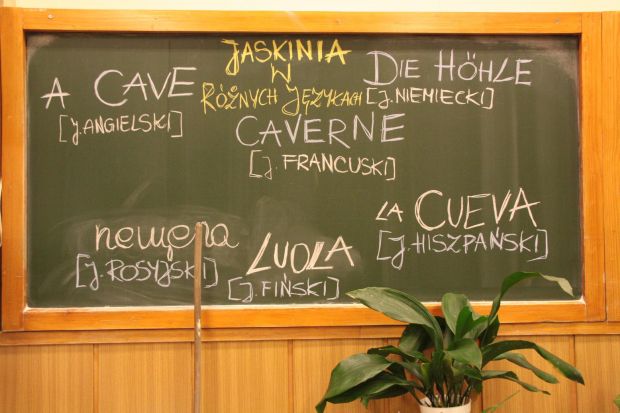 JASKINIA
W
RÓŻNYCH JĘZYKACH
A CAVE
[J. ANGIELSKI]
DIE HÖHLE
[J. NIEMIECKI]
CAVERNE
[J. FRANCUSKI]
LA CUEVA
[J. HISZPAŃSKI]
пещера
[J. ROSYJSKI]
LUOLA
[J. FIŃSKI]